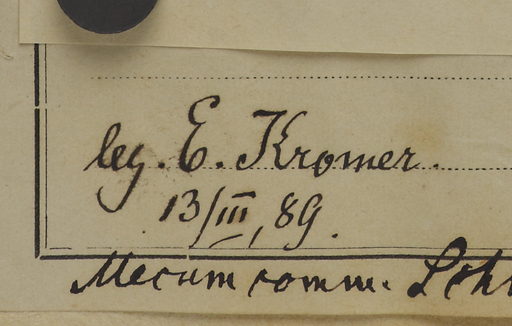 leg. E. Kromer.
13/III, 89.
Mecum comm.